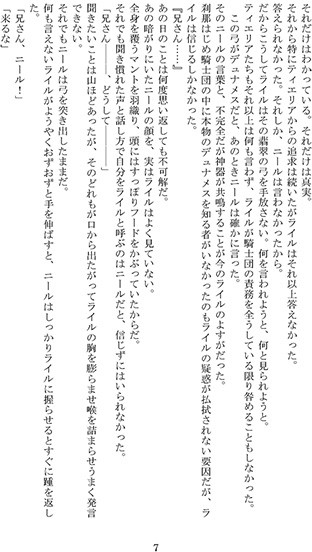 それだけはわかっている。それだけは真実。
それから特にティエリアからの追求は続いたがライルはそれ以上答えなかった。
答えられなかった。それしか、ニールは言わなかったから。
だからこうしてライルはその翡翠の弓を手放さない。何を言われようと、何と見られようと。
ティエリアたちもそれ以上は何も言わず、ライルが騎士団の責務を全うしている限り咎めることもしなかった。
この弓がデュナメスだと、あのときニールは確かに言った。
そのニールの言葉と、不完全だが神器が共鳴することが今のライルのよすがだった。
刹那はじめ騎士団の中に本物のデュナメスを知る者がいなかったのもライルの疑惑が払拭されない要因だが、ラ
イルは信じるしかなかった。
『兄さん……』
あの日のことは何度思い返しても不可解だ。
あの暗がりにいたニールの顔を、実はライルはよく見ていない。
全身を覆うマントを羽織り、頭にはすっぽりフードをかぶっていたからだ。
それでも聞き慣れた声と話し方で自分をライルと呼ぶのはニールだと、信じずにはいられなかった。
「兄さん――――、どうして――――」
聞きたいことは山ほどあったが、そのどれもが口から出たがってライルの胸を膨らませ喉を詰まらせうまく発言
できない。
それでもニールは弓を突き出したままだ。
何も言えないライルがようやくおずおずと手を伸ばすと、ニールはしっかりライルに握らせるとすぐに踵を返し
た。
「兄さん、ニール！」
「来るな」
7